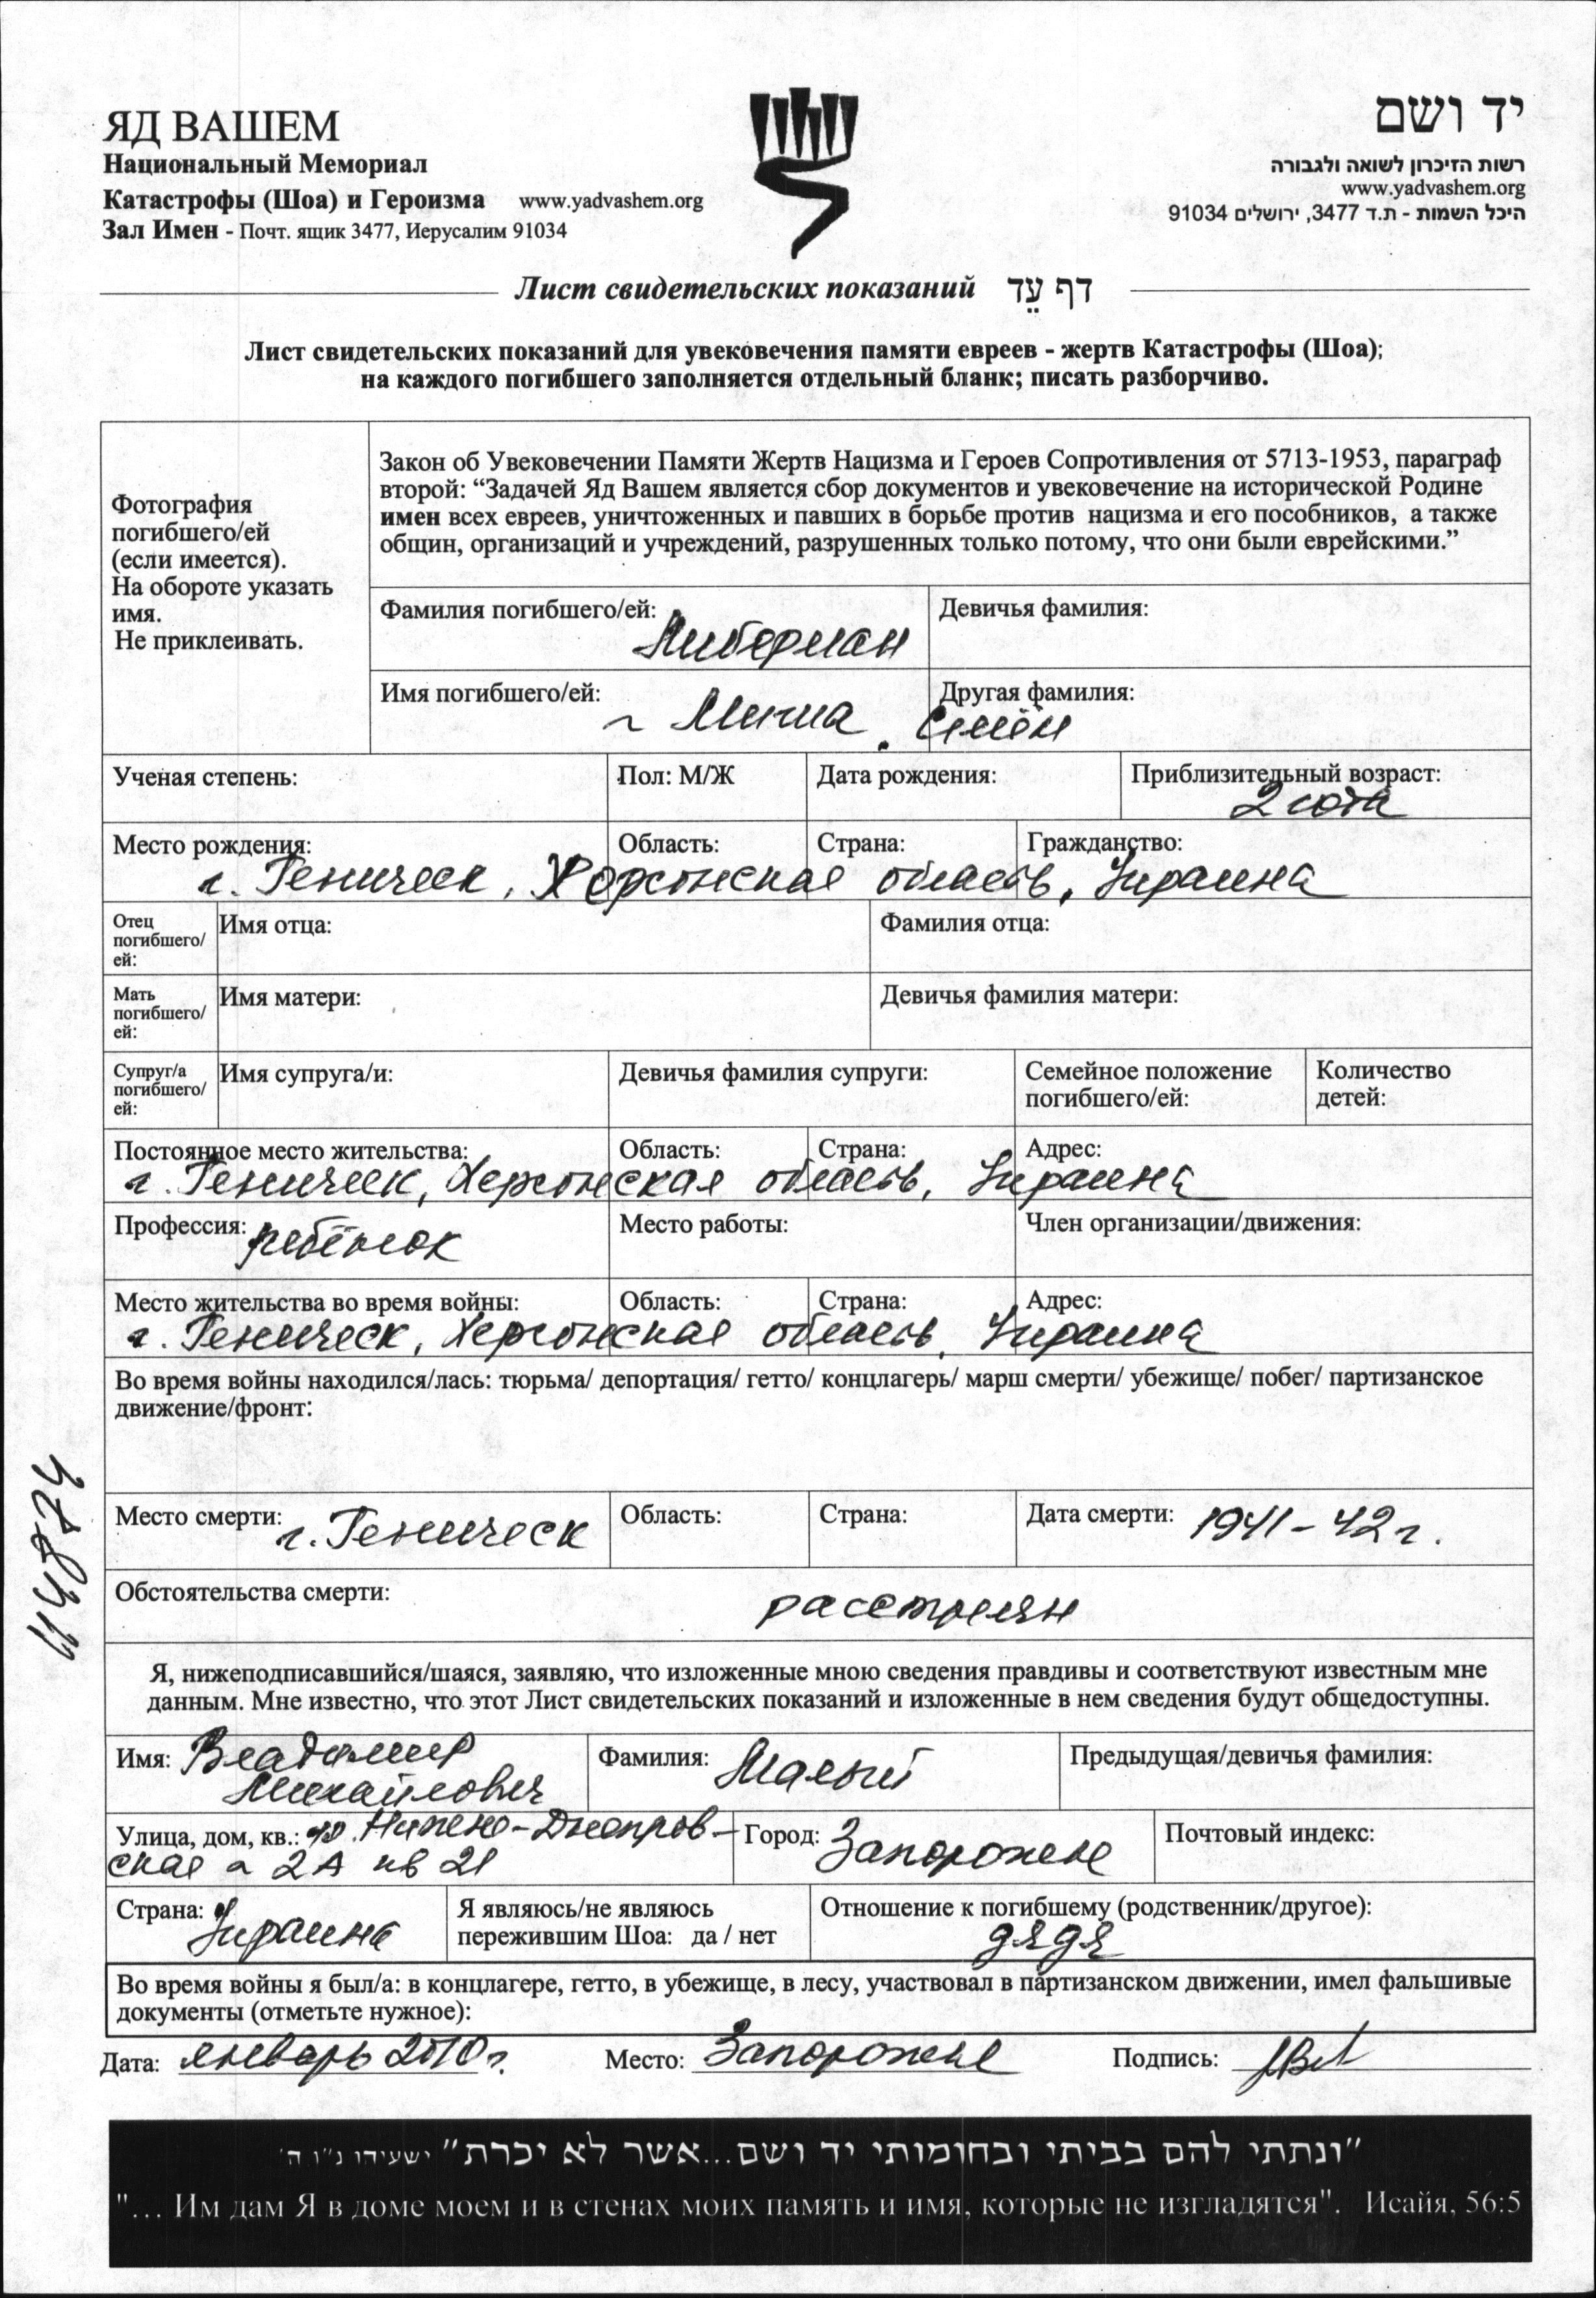 ЯД ВАШЕМ
Национальный Мемориал
Катастрофы (Шоа) и Героизма www.yadvashem.org
Зал Имен - Почт. ящик 3477, Иерусалим 91034
יד ושם
רשות הזיכרון לשואה ולגבורה
www.yadvashem.org
היכל השמות - ת.ד 3477, ירושלים 91034
Лист свидетельских показаний דף עֵד
Лист свидетельских показаний для увековечения памяти евреев - жертв Катастрофы (Шоа);
на каждого погибшего заполняется отдельный бланк; писать разборчиво.
Фотография
погибшего/ей
(если имеется).
На обороте указать
имя.
Не приклеивать.
Закон об Увековечении Памяти Жертв Нацизма и Героев Сопротивления от 5713-1953, параграф
второй: “Задачей Яд Вашем является сбор документов и увековечение на исторической Родине
имен всех евреев, уничтоженных и павших в борьбе против нацизма и его пособников, а также
общин, организаций и учреждений, разрушенных только потому, что они были еврейскими.”
Фамилия погибшего/ей: Либерман Девичья фамилия:
Имя погибшего/ей: Другая фамилия:
Семён
Ученая степень: Пол: М/Ж Дата рождения: Приблизительный возраст:
2 года
Место рождения: Область: Страна: Гражданство:
г. Геническ, Херсонская область, Украина
Отец
погибшего/
ей:
Имя отца: Фамилия отца:
Мать
погибшего/
ей:
Имя матери: Девичья фамилия матери:
Супруг/а
погибшего/
ей:
Имя супруга/и: Девичья фамилия супруги: Семейное положение
погибшего/ей:
Количество
детей:
Постоянное место жительства: Область: Страна: Адрес:
г. Геническ, Херсонская область, Украина
Профессия: ребёнок Место работы: Член организации/движения:
Место жительства во время войны: Область: Страна: Адрес:
г. Геническ, Херсонская область, Украина
Во время войны находился/лась: тюрьма/ депортация/ гетто/ концлагерь/ марш смерти/ убежище/ побег/ партизанское
движение/фронт:
114874
Место смерти: г. Геническ Область: Страна: Дата смерти: 1941-42 г.
Обстоятельства смерти: расстрелян
Я, нижеподписавшийся/шаяся, заявляю, что изложенные мною сведения правдивы и соответствуют известным мне
данным. Мне известно, что этот Лист свидетельских показаний и изложенные в нем сведения будут общедоступны.
Имя: Владимир Фамилия: Малый Предыдущая/девичья фамилия:
Михайлович
Улица, дом, кв.: Нижне-Днепров- Город: Запорожье Почтовый индекс:
ская 2А кв 21
Страна: Украина Я являюсь/не являюсь
пережившим Шоа: да / нет
Отношение к погибшему (родственник/другое):
дядя
Во время войны я был/а: в концлагере, гетто, в убежище, в лесу, участвовал в партизанском движении, имел фальшивые
документы (отметьте нужное):
Дата: январь 2010 г. Место: Запорожье Подпись:
"ונתתי להם בביתי ובחומותי יד ושם...אשר לא יכרת" ישעיהו נ"ו ה'
"... Им дам Я в доме моем и в стенах моих память и имя, которые не изгладятся". Исайя, 56:5